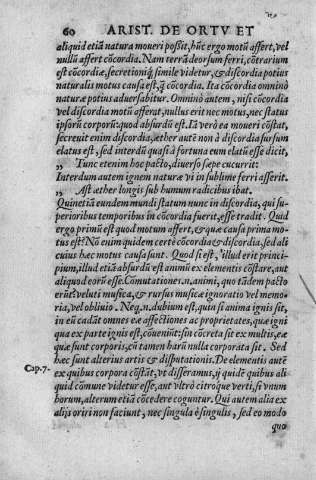 60 ARIST. DE ORTV ET
aliquid etiã natura moueri poßit, hũc ergo motũ affert, vel
nullũ affert cõcordia. Nam terrã deorsum ferri, cõtrarium
est cõcordiæ, secretioniq; simile videtur, & discordia potius
naturalis motus causa est, q̃ cõcordia. Ita cõcordia omninò
naturæ potius aduersabitur. Omninò autem, nisi cõcordia
vel discordia motũ afferat, nullus erit nec motus, nec status
ipsorũ corporũ: quod absurdũ est. Iã verò ea moueri cõstat,
secreuit enim discordia, æther autẽ non à discordia sursum
elatus est, sed interdũ quasi à fortuna eum elatũ esse dicit,
„ Tunc etenim hoc pacto, diuerso sæpe cucurrit:
Interdum autem ignem naturæ vi in sublime ferri asserit.
„ Ast æther longis sub humum radicibus ibat.
Quinetiã eundem mundi statum nunc in discordia, qui su-
perioribus temporibus in cõcordia fuerit, esse tradit. Quid
ergo primũ est quod motum affert, & quæ causa prima mo-
tus est? Nõ enim quidem certè cõcordia & discordia, sed ali
cuius hæc motus causa sunt. Quod si est, illud erit princi-
pium, illud etiã absurdũ est animũ ex elementis cõstare, aut
aliquod eorũ esse. Cõmutationes .n. animi, quo tãdem pacto
erũt? veluti musica, & rursus musicæ ignoratio vel memo-
ria, vel obliuio. Neq. n. dubium est, quin si anima ignis sit,
in eũ cadãt omnes eæ affectiones ac proprietates, quæ igni
qua ex parte ignis est, coueniũt: sin cõcreta sit ex multis, eæ
quæ sunt corporis, cũ tamen harũ nulla corporata sit. Sed
hæc sunt alterius artis & disputationis. De elementis autẽ
Cap.7. ex quibus corpora cõstãt, vt disseramus, ij quidẽ quibus ali
quid cõmune videtur esse, aut vltrò citroque verti, si vnum
horum, alterum etiã cõcedere coguntur. Qui autem alia ex
alijs oriri non faciunt, nec singula è singulis, sed eo modo
quo